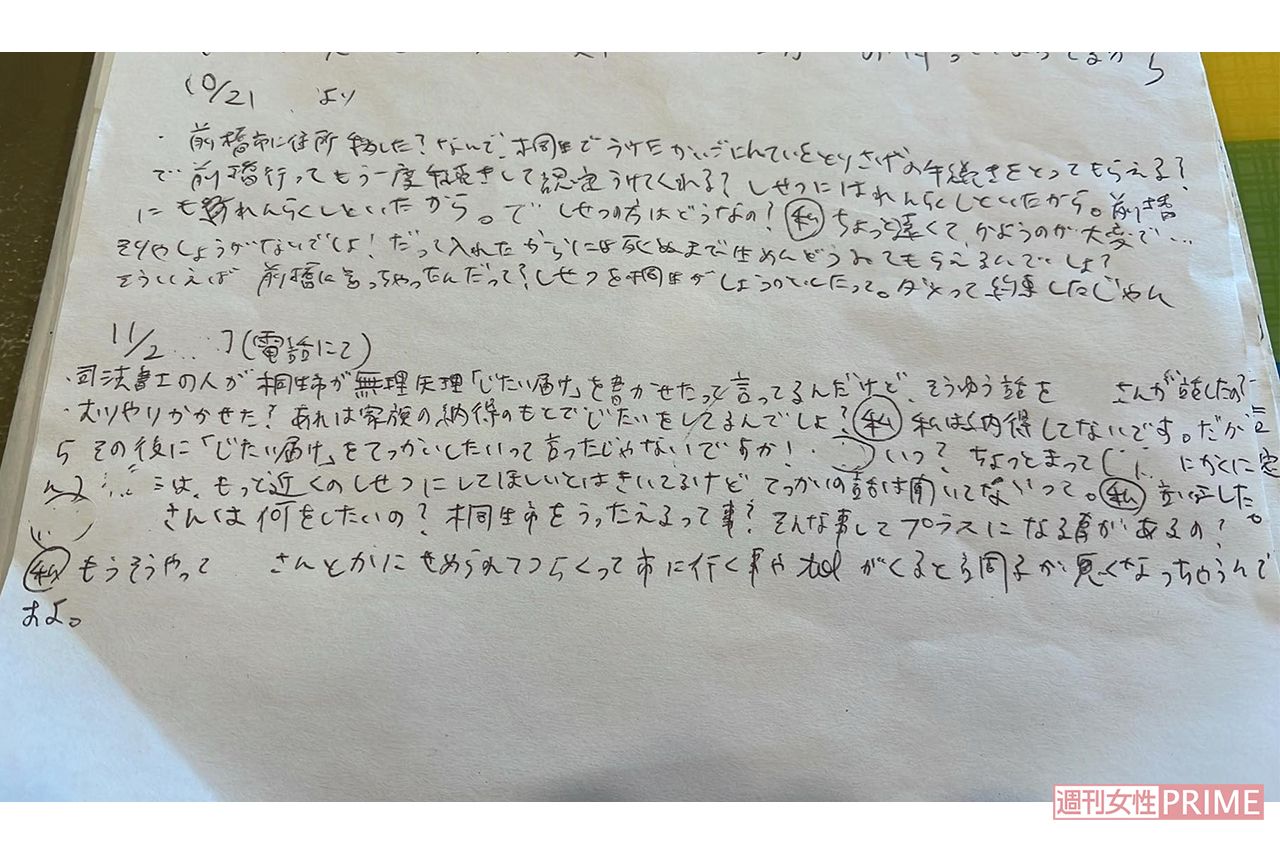 10/21 より
・前橋市に住所移した？なんで、桐生でうけたかいごにんていをとりさげの手続きをとってもらえる？
で前橋行ってもう一度手続きして認定うけてくれる？しせつにはれんらくしといたから。前橋
にもれんらくしといたから。でしせつの方はどうなの？私 ちょっと遠くて、かようのが大変で…
そりゃしょうがないでしょ！だって入れたからには死ぬまで生めんどうみてもらえるんでしょ？
そういえば前橋に言っちゃったんだって？しせつを桐生がしょうかいしたって。だって約束したじゃん
11/2 (電話にて)
・司法書士の人が桐生市が無理矢理「じたい届け」を書かせたって言ってるんだけど、そうゆう話を さんが話したの？
・むりやりかかせた？あれは家族の納得のもとでじたいをしてるんでしょ？私 私は納得してないです。だか
らその後に「じたい届け」をてっかいしたいって言ったじゃないですか！ いつ？ちょっとまって にかくに
は、もっと近くのしせつにしてほしいとはきいてるけどてっかいの話は聞いてないって。私
さんは何をしたいの？桐生市をうったえるって事？そんな事してプラスになる事があるの？
私 もうそうやって さんとかにせめられてつらくって市に行く事やtelがくると調子が悪くなっちゃうんで
すよ。
週刊女性PRIME